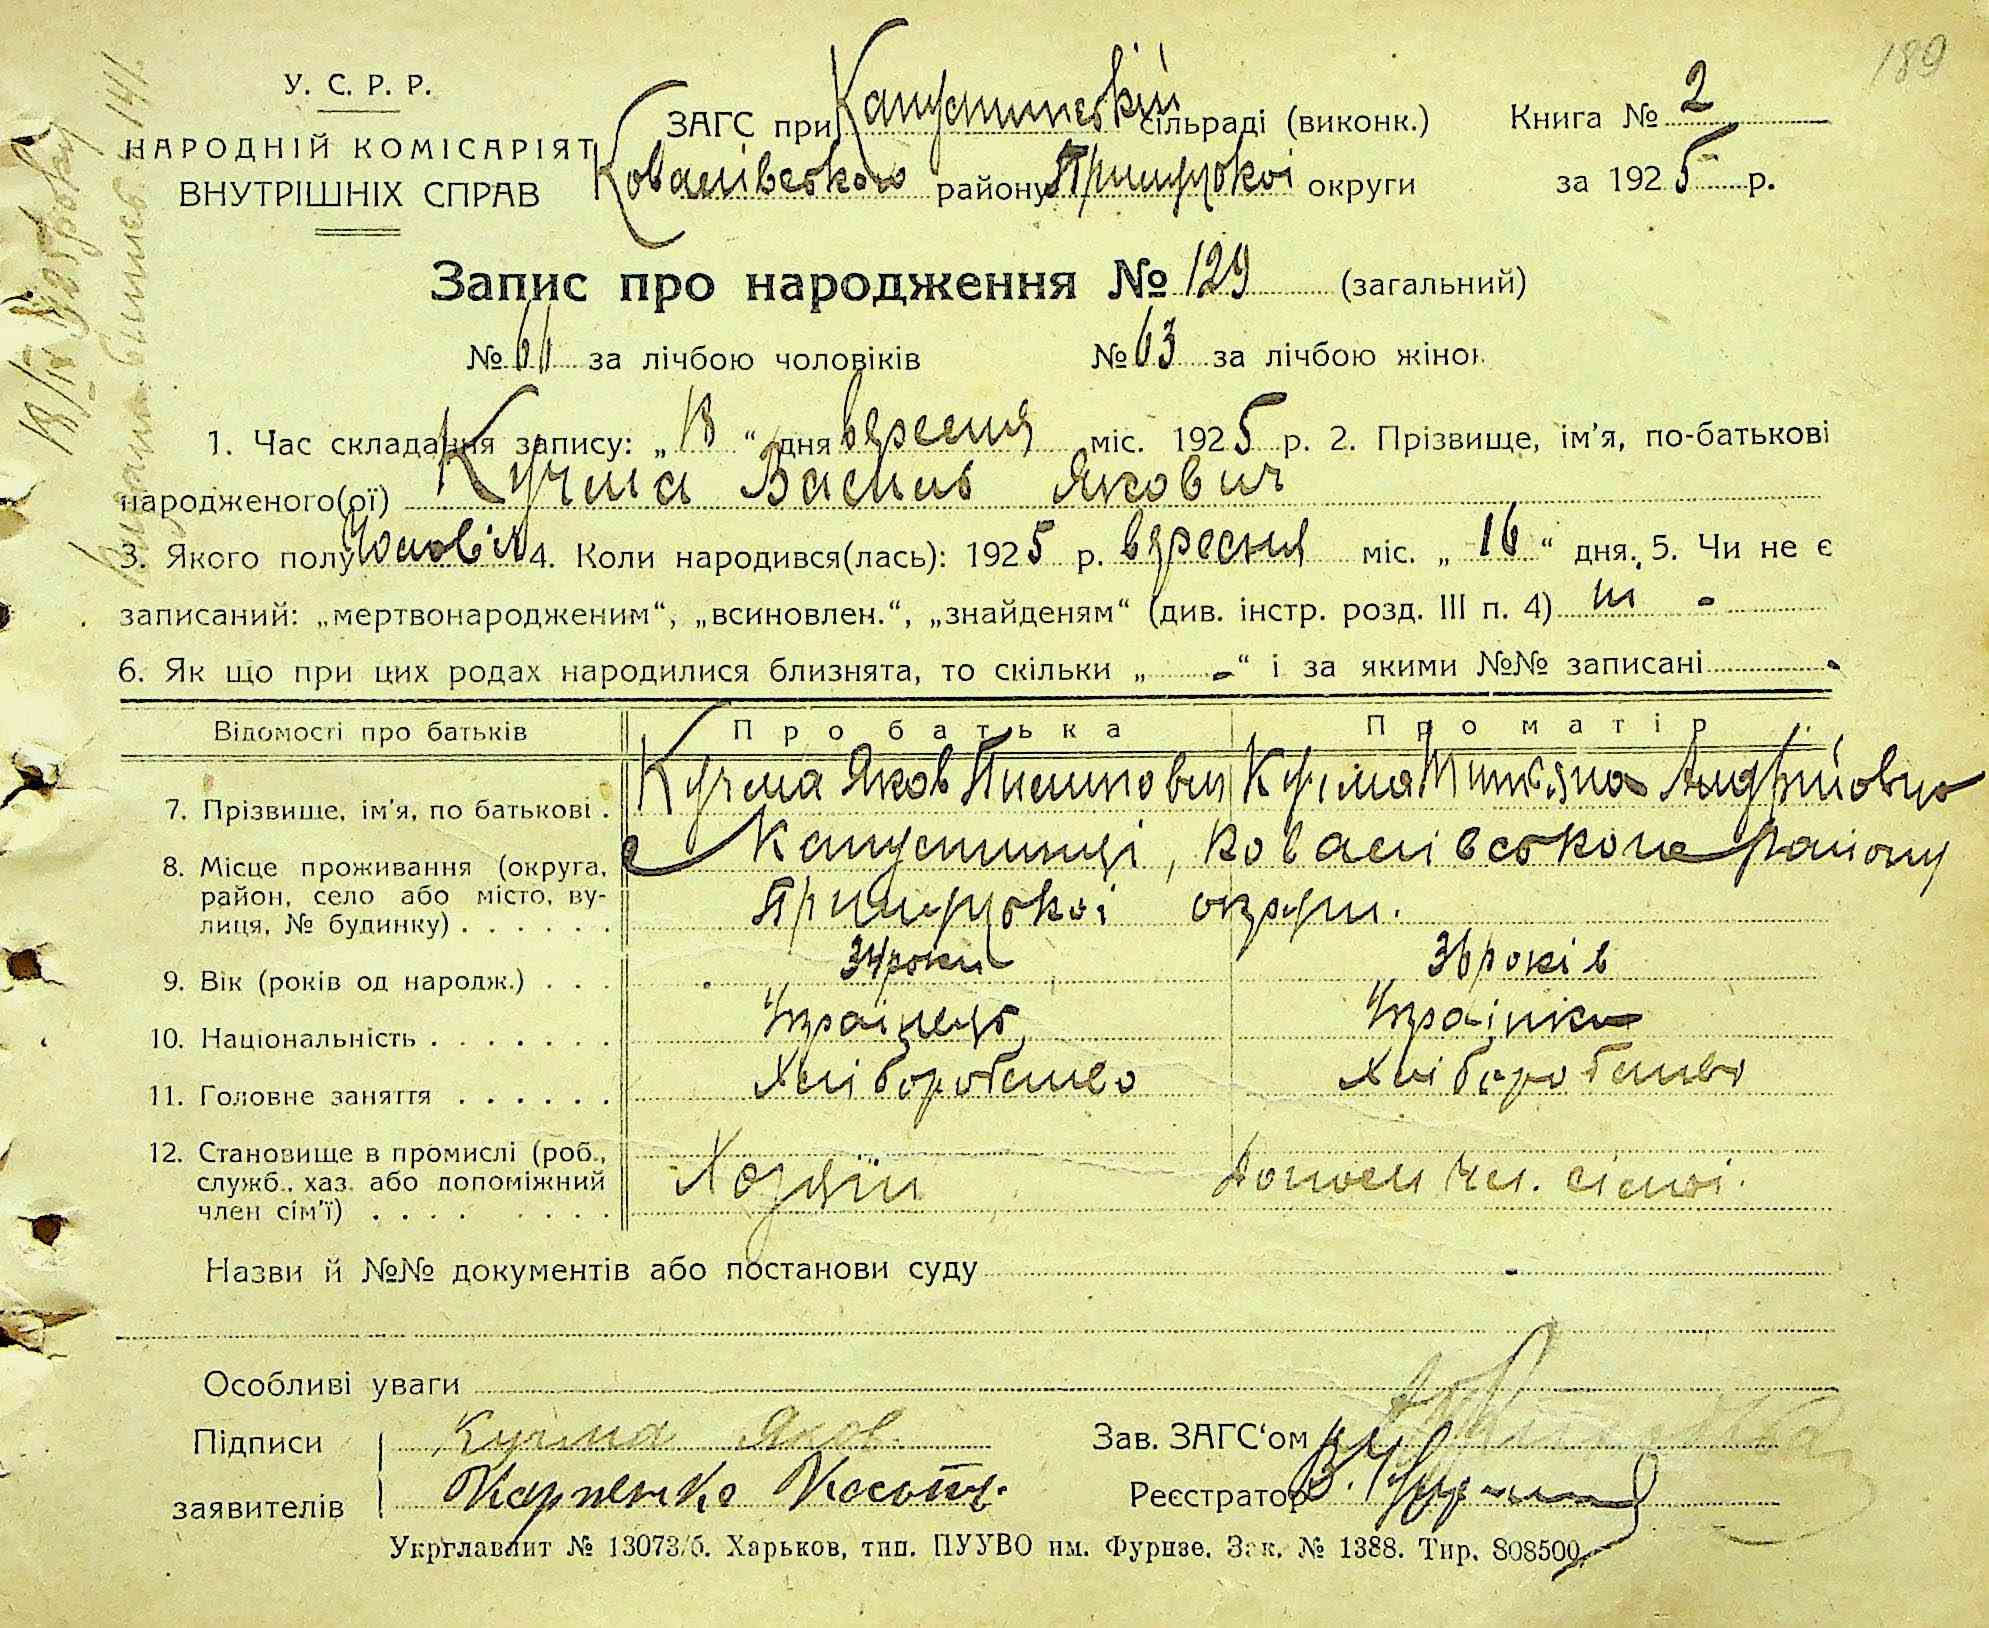 189
У. С. Р. Р.
НАРОДНІЙ КОМІСАРІЯТ
ВНУТРІШНІХ СПРАВ
ЗАГС при Капустинській сільраді (виконк.)
Ковалівського району Прилуцкоі округи
Книга № 2
за 1925 р.
Запис про народження № 129 (загальний)
№ 61 за лічбою чоловіків № 63 за лічбою жінок
1. Час складання запису: „18“ дня вересня міс. 1925 р. 2. Прізвище, ім'я, по-батькові
народженого(ої) Кучма Василь Якович
3. Якого полу чолов'ік 4. Коли народився(лась): 1925 р. вересня міс. „16“ дня. 5. Чи не є
записаний: „мертвонародженим“, „всиновлен.“, „знайденям“ (див. інстр. розд. III п. 4) ні -
6. Як що при цих родах народилися близнята, то скільки „ - “ і за якими №№ записані -
Відомості про батьків Про батька Про матір
7. Прізвище, ім'я, по батькові . Кучма Яков Пилипович Кучма Титяна Андрійовна
8. Місце проживання (округа, район, село або місто, вулиця, № будинку) . . . . . . с Капустинці, Ковалівського району
Прилуцкоі округи.
9. Вік (років од народж.) . . . 34 роки 36 років
10. Національність . . . . . . . Украінець Украінка
11. Головне заняття . . . . . . Хліборобство Хліборобство
12. Становище в промислі (роб., служб., хаз. або допоміжний член сім'ї) . . . . . . . . Хозяїн Допом чл. сімї.
Назви й №№ документів або постанови суду -
Особливі уваги
Підписи Кучма Яков Зав. ЗАГС'ом
заявителів Карпенко Реєстратор
Укрглавліт № 13073/б. Харьков, тип. ПУУВО им. Фрунзе. Зак. № 1388. Тир. 808500.